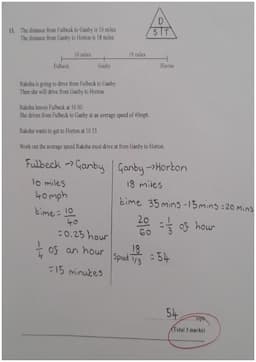 D
S T
13. The distance from Fulbeck to Ganby is 10 miles
The distance from Ganby to Horton is 18 miles
10 miles 18 miles
Fulbeck Ganby Horton
Raksha is going to drive from Fulbeck to Ganby.
Then she will drive from Ganby to Horton.
Raksha leaves Fulbeck at 10 00
She drives from Fulbeck to Ganby at an average speed of 40mph.
Raksha wants to get to Horton at 10 35
Work out the average speed Raksha must drive at from Ganby to Horton.
Fulbeck → Ganby
10 miles
40mph
time = 10/40
= 0.25 hour
1/4 of an hour
= 15 minutes
Ganby → Horton
18 miles
time 35 mins - 15 mins = 20 mins
20/60 = 1/3 of hour
Speed 18/1/3 = 54
54
mph
(Total 3 marks)